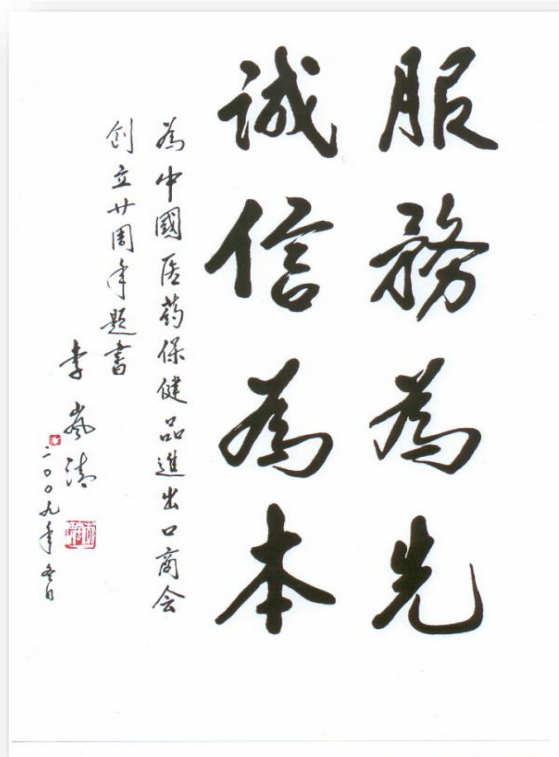 服務為先
誠信為本
為中國医药保健品進出口商会
创立廿周年题書
李岚清
二〇〇九年冬日